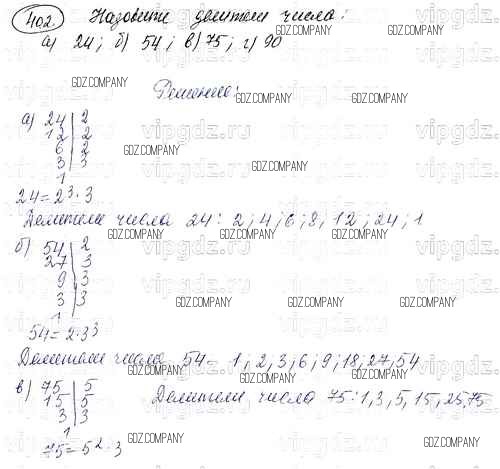 402. Назовите делители числа:
а) 24; б) 54; в) 75; г) 90
GDZ.COMPANY GDZ.COMPANY GDZ.COMPANY
Решение:
GDZ.COMPANY GDZ.COMPANY GDZ.COMPANY
а) 24 | 2
12 | 2
6 | 2
3 | 3
1
vipgdz.ru vipgdz.ru vipgdz.ru
GDZ.COMPANY GDZ.COMPANY
24 = 2³ · 3
Делители числа 24: 2; 4; 6; 8; 12; 24; 1
GDZ.COMPANY GDZ.COMPANY GDZ.COMPANY GDZ.COMPANY
б) 54 | 2
27 | 3
9 | 3
3 | 3
1
vipgdz.ru vipgdz.ru vipgdz.ru
GDZ.COMPANY GDZ.COMPANY GDZ.COMPANY
54 = 2 · 3³
Делители числа 54 = 1; 2; 3; 6; 9; 18; 27; 54
GDZ.COMPANY GDZ.COMPANY GDZ.COMPANY
в) 75 | 5
15 | 5
3 | 3
1
Делители числа 75: 1, 3, 5, 15, 25, 75
75 = 5² · 3
GDZ.COMPANY GDZ.COMPANY